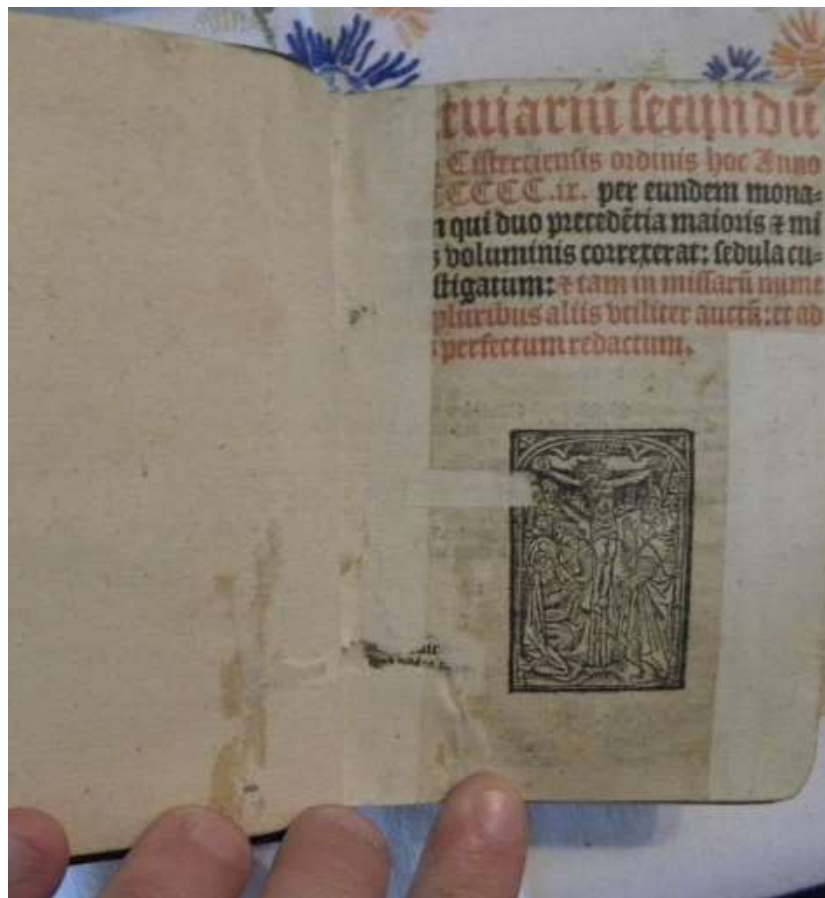 euiariū secundū
Cistrectensis ordinis hoc Anno
CCCC.ix. per eundem mona⸗
n qui duo precedētia maioris ⁊ mi
voluminis correxerat: sedula cu⸗
stigatum: ⁊ tam in missarū nume
pluribus aliis vtiliter auctū: et ad
perfectum redactum.